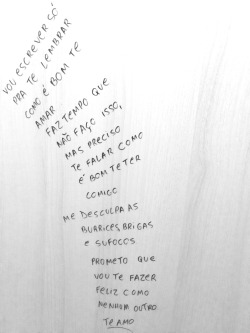 VOU ESCREVER SÓ
PRA TE LEMBRAR
COMO É BOM TE
AMAR
FAZ TEMPO QUE
NÃO FAÇO ISSO,
MAS PRECISO
TE FALAR COMO
É BOM TE TER
COMIGO
ME DESCULPA AS
BURRICES, BRIGAS
E SUFOCOS
PROMETO QUE
VOU TE FAZER
FELIZ COMO
NENHUM OUTRO
TE AMO